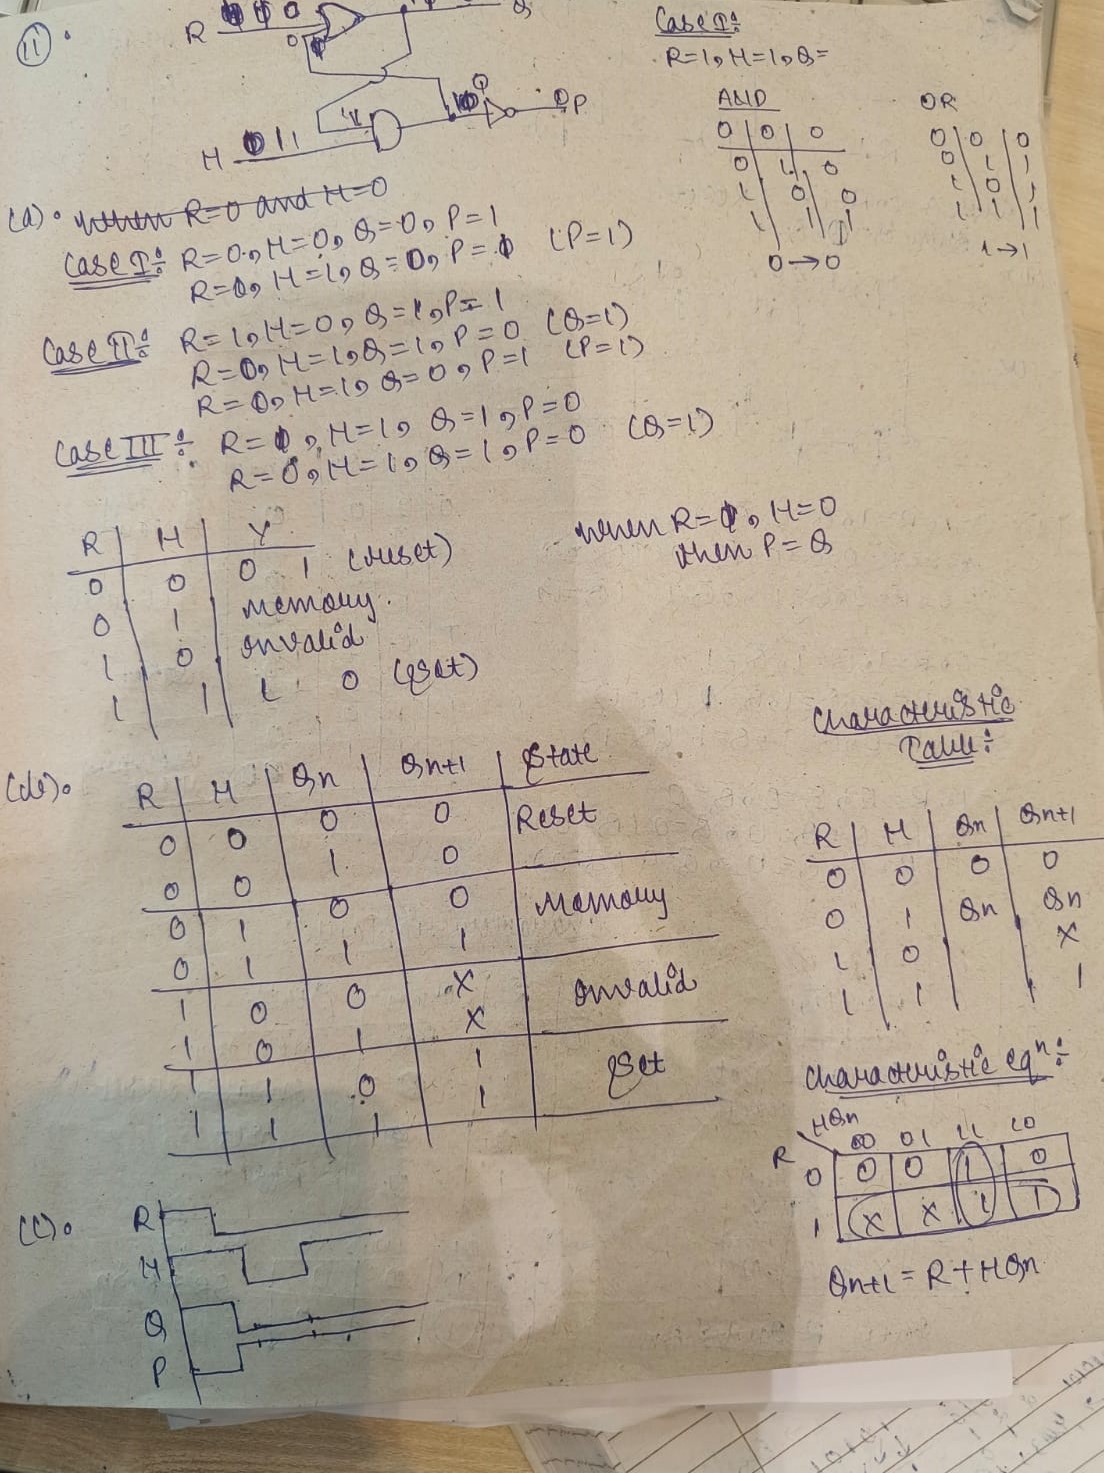 11.
R 0 Q
Case I:
R=1, H=1, Q=
H 0 1 1 0 P
AND
0 0 0
0 1 0
1 0 0
1 1 1
0→0
OR
0 0 0
0 1 1
1 0 1
1 1 1
1→1
(a). when R=0 and H=0
Case I: R=0, H=0, Q=0, P=1
R=0, H=1, Q=0, P=1 (P=1)
Case II: R=1, H=0, Q=1, P=1
R=0, H=1, Q=1, P=0 (Q=1)
R=0, H=1, Q=0, P=1 (P=1)
Case III: R=1, H=1, Q=1, P=0
R=0, H=1, Q=1, P=0 (Q=1)
R H Y
0 0 0 1 (reset)
0 1 Memory.
1 0 invalid
1 1 1 0 (set)
when R=1, H=0
then P=Q
R H Qn Qn+1 State
0 0 0 0 Reset
0 0 1 0
0 1 0 0 Memory
0 1 1 1
1 0 0 X invalid
1 0 1 X
1 1 0 1 Set
1 1 1 1
Characteristic
Table:
R H Qn Qn+1
0 0 0 0
0 1 Qn Qn
1 0 X
1 1 1
Characteristic eqn:
R HQn 00 01 11 10
0 0 0 1 0
1 X X 1 1
Qn+1 = R+HQn
(c).
R
H
Q
P